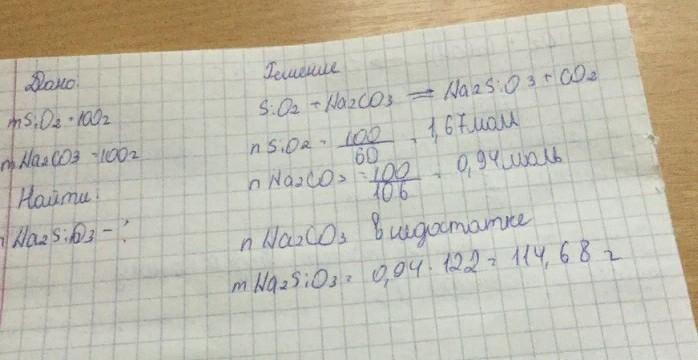 Дано:
mSiO2 = 100г
mNa2CO3 = 100г
Найти:
Na2SiO3 - ?
Решение
SiO2 + Na2CO3 = Na2SiO3 + CO2
n SiO2 = 100/60 = 1,67 моль
n Na2CO3 = 100/106 = 0,94 моль
n Na2CO3 в недостатке
m Na2SiO3 = 0,94 · 122 = 114,68 г